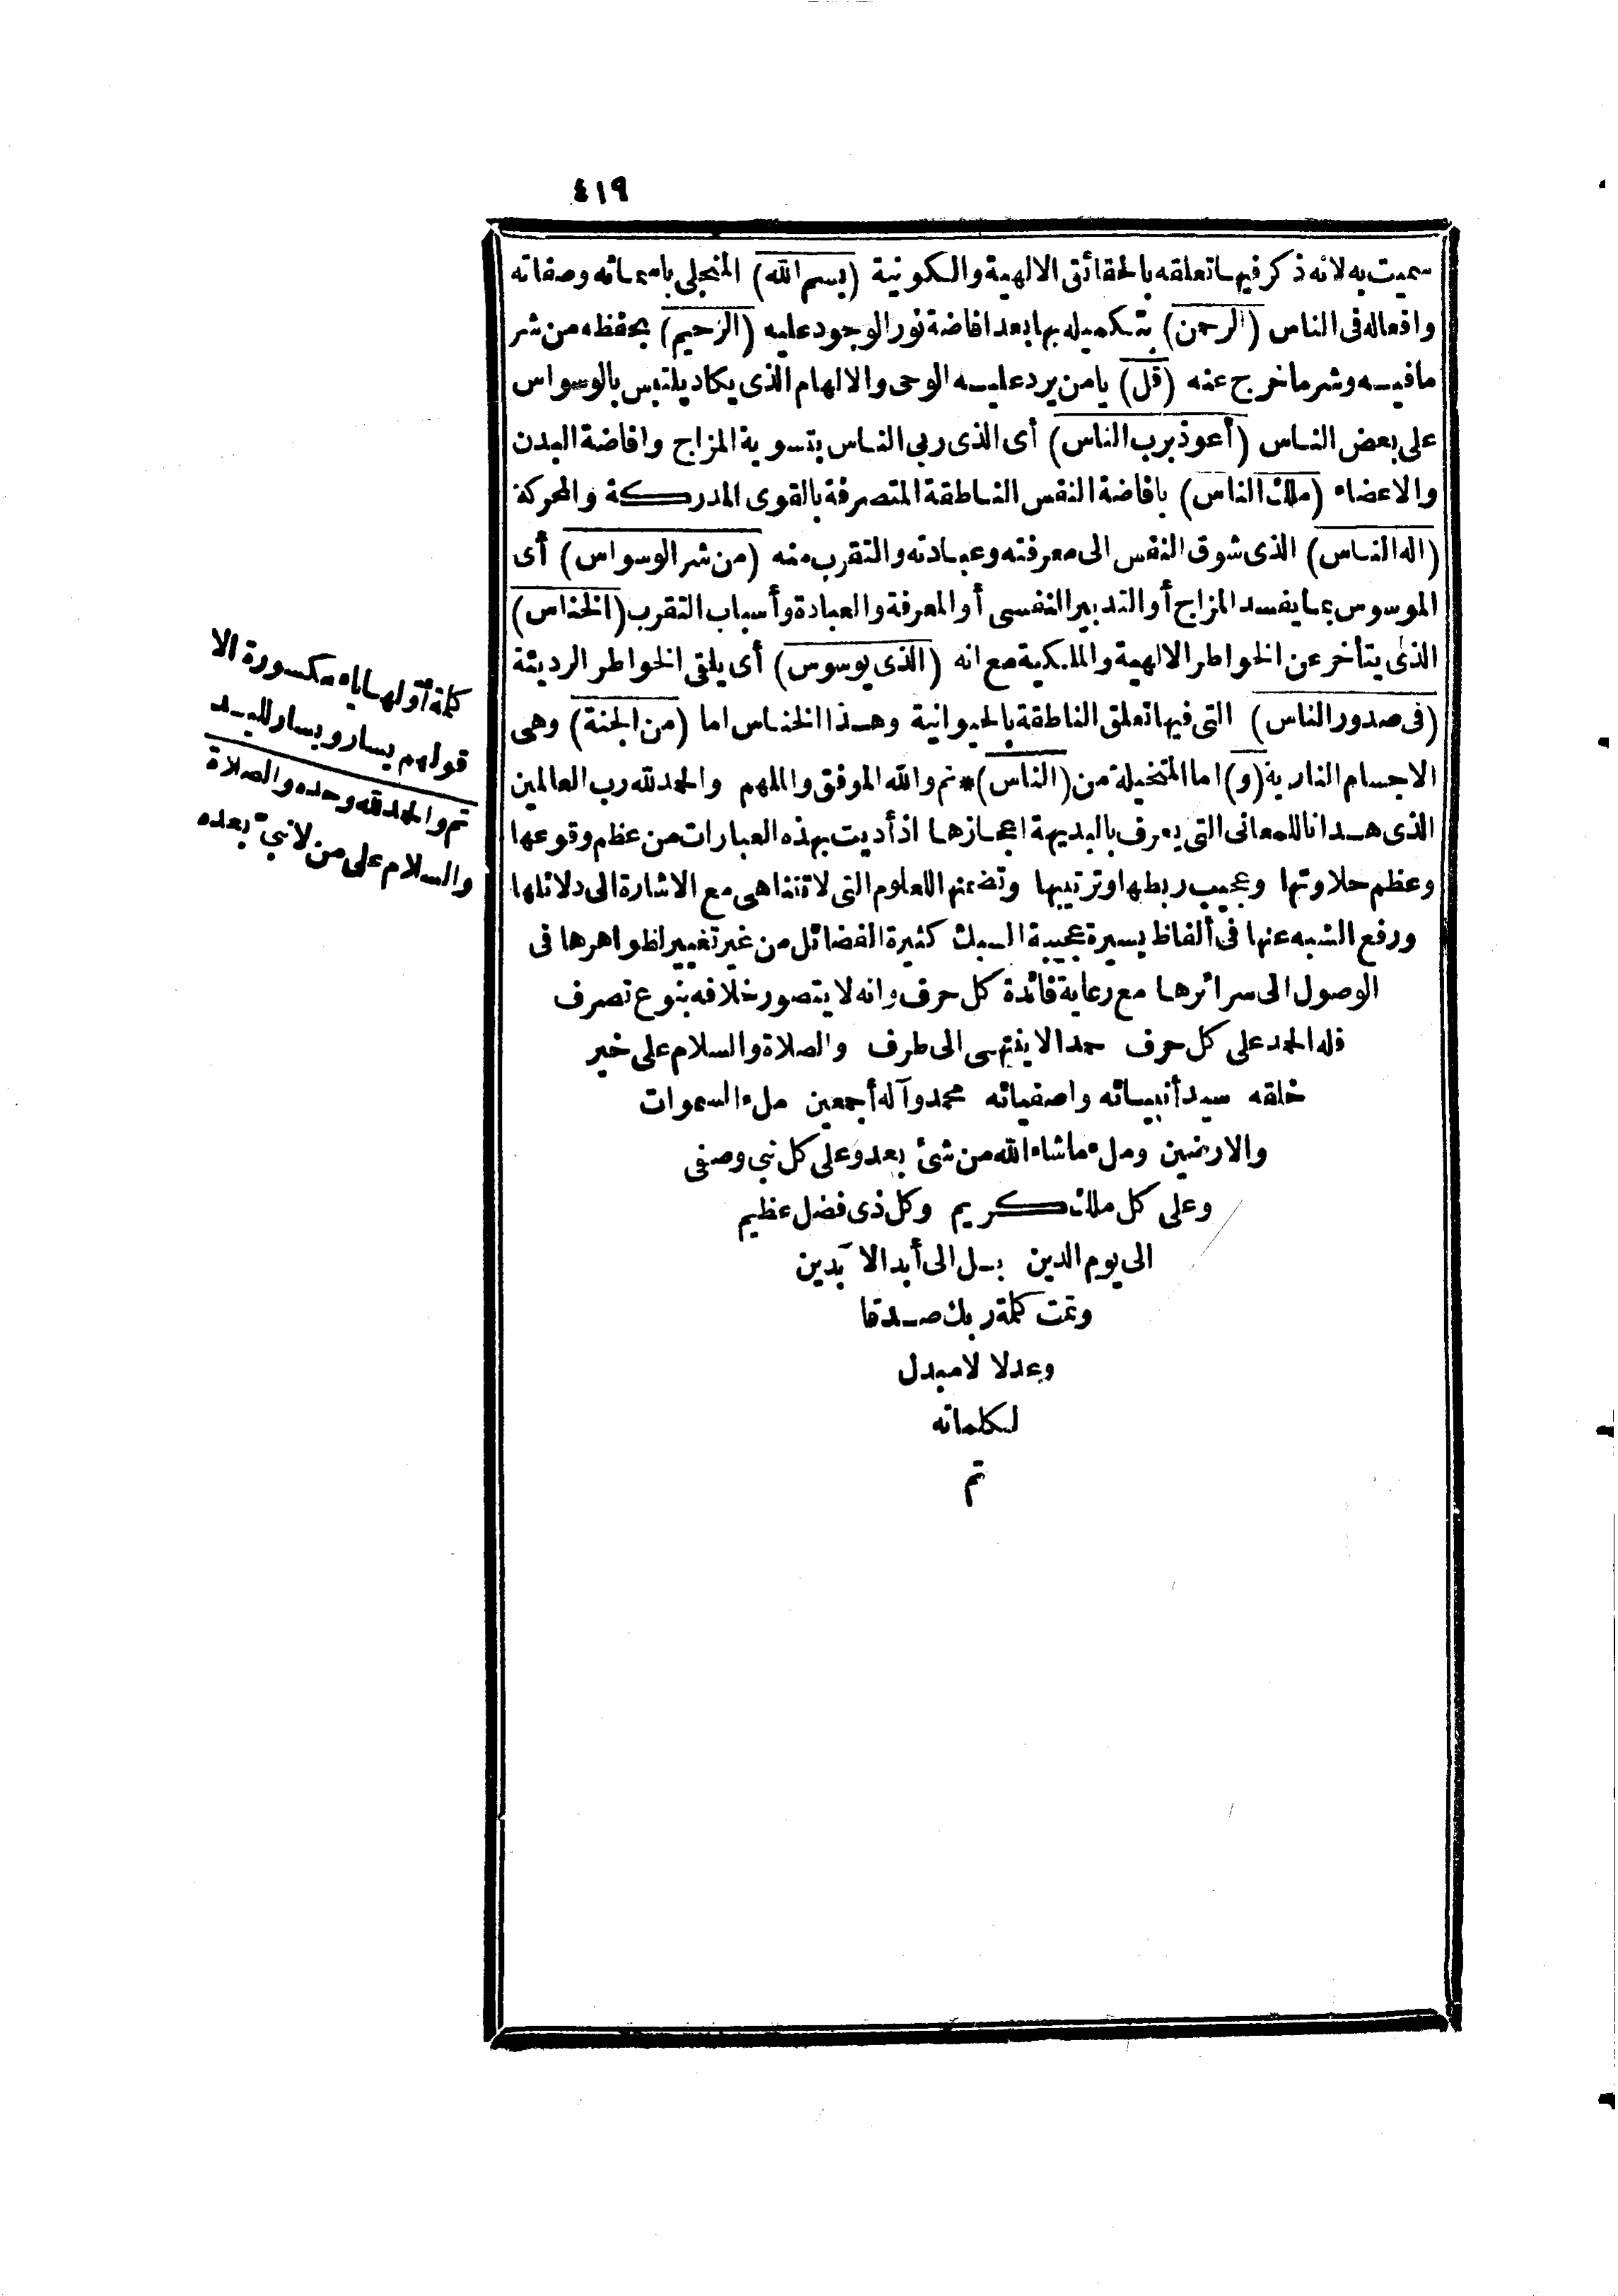 ٤١٩
سميت به لانه ذكر فيها تعلقه بالحقائق الالهية والكونية (بسم الله) المتجلى باسمائه وصفاته
وافعاله فى الناس (الرحمن) بتكميله بها بعد افاضة نور الوجود عليه (الرحيم) بحفظه من شر
ما فيه وشر ما خرج عنه (قل) يا من يرد عليه الوحى والالهام الذى يكاد يلتبس بالوسواس
على بعض الناس (أعوذ برب الناس) أى الذى ربى الناس بتسوية المزاج وافاضة البدن
والاعضاء (ملك الناس) بافاضة النفس الناطقة المتصرفة بالقوى المدركة والمحركة
(اله الناس) الذى شوق النفس الى معرفته وعبادته والتقرب منه (من شر الوسواس) أى
الموسوس بما يفسد المزاج أو التدبير النفسى أو المعرفة والعبادة وأسباب التقرب (الخناس)
الذى يتأخر عن الخواطر الالهية والملكية مع انه (الذى يوسوس) أى يلقى الخواطر الرديئة
(فى صدور الناس) التى فيها تعلق الناطقة بالحيوانية وهذا الخناس اما (من الجنة) وهى
الاجسام النارية (و) اما المتخيلة من (الناس) * تم والله الموفق والملهم والحمد لله رب العالمين
الذى هدانا للمعانى التى يعرف بالبديهة اعجازها اذ أديت بهذه العبارات من عظم وقوعها
وعظم حلاوتها وعجيب ربطها وترتيبها وتضمنها للعلوم التى لا تتناهى مع الاشارة الى دلائلها
ورفع الشبه عنها فى ألفاظ يسيرة عجيبة السبك كثيرة الفضائل من غير تغيير لظواهرها فى
الوصول الى سرائرها مع رعاية فائدة كل حرف وانه لا يتصور خلافه بنوع تصرف
فله الحمد على كل حرف حمدا لا ينتهى الى طرف والصلاة والسلام على خير
خلقه سيد أنبيائه واصفيائه محمد وآله أجمعين ملء السموات
والارضين وملء ما شاء الله من شئ بعد وعلى كل نبى وصفى
وعلى كل ملك كريم وكل ذى فضل عظيم
الى يوم الدين بل الى أبد الآبدين
وتمت كلمة ربك صدقا
وعدلا لا مبدل
لكلماته
تم
كلمة أولها ياء مكسورة الا
قولهم يسار ويسار لليد
تم والحمد لله وحده والصلاة
والسلام على من لا نبىّ بعده